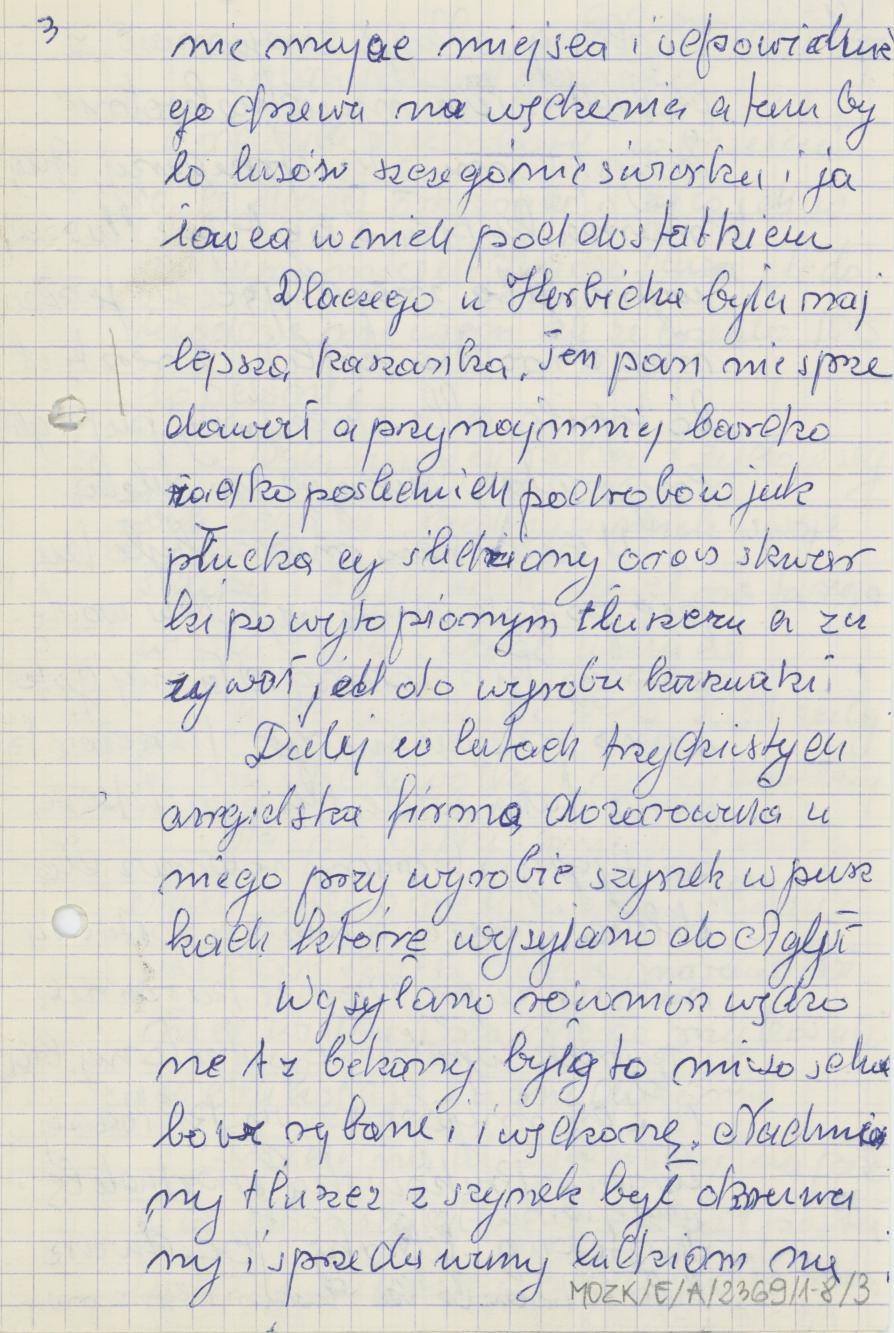 3
nie mając miejsca i odpowiednie
go drzewa na wędzenia a tam by
ło lasów szczegómie świerku i ja
łowca w nich pod dostatkiem
Dlaczego u Herbicha była naj
lepsza kaszanka. Ten pan nie sprze
dawał a przynajmniej bardzo
rzadko poslednich podrobów jak
płucka cy śledziony oraz skwar
ki po wytopionym tłuszczu a zu
żywał jed do wyrobu kaszanki
Dalej w latach trzydzistych
angielska firma dozorowała u
niego przy wyrobie szynek w pusz
kach które wysyłano do
Wysyłano równierz wędzo
ne tz bekony było to mięso scha
bowe rybane i i wędzone. Nadmia
ny tłuszcz z szynek był obrawa
ny i sprzedawany ludziom na
MOZK/E/A/2369/1-8/3